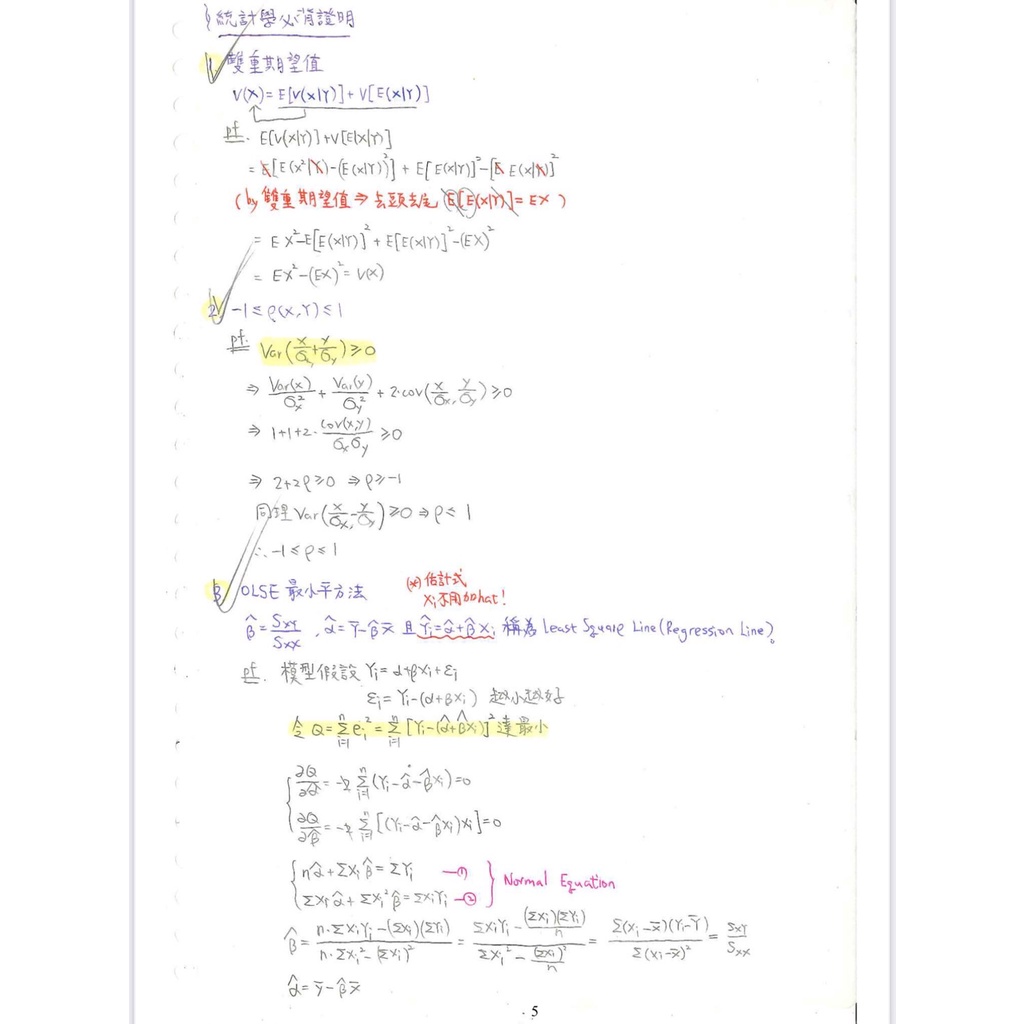 § 統計學必背證明
1. 雙重期望值
V(X)=E[V(X|Y)]+V[E(X|Y)]
pf. E[V(X|Y)]+V[E(X|Y)]
=E[E(X²|Y)-(E(X|Y))²]+E[E(X|Y)]²-[E E(X|Y)]²
(by 雙重期望值⇒去頭去尾 E[E(X|Y)]=EX)
=EX²-E[E(X|Y)]²+E[E(X|Y)]²-(EX)²
=EX²-(EX)²=V(X)
2. -1≤ρ(X,Y)≤1
pf. Var(X/σx+Y/σy)≥0
⇒ Var(x)/σx²+Var(y)/σy²+2·cov(X/σx,Y/σy)≥0
⇒ 1+1+2·cov(x,y)/σxσy≥0
⇒ 2+2ρ≥0 ⇒ρ≥-1
同理Var(X/σx-Y/σy)≥0⇒ρ≤1
∴-1≤ρ≤1
3. OLSE 最小平方法 (*)估計式
Xi不用加hat!
β̂=SXY/SXX, α̂=Ȳ-β̂X̄ 且Ŷi=α̂+β̂Xi 稱為 Least Square Line(Regression Line)。
pf. 模型假設 Yi=α+βXi+εi
εi=Yi-(α+βXi) 越小越好
令Q=Σei²=Σ[Yi-(α̂+β̂Xi)]²達最小
∂Q/∂α̂=-2Σ(Yi-α̂-β̂Xi)=0
∂Q/∂β̂=-2Σ[(Yi-α̂-β̂Xi)Xi]=0
nα̂+ΣXiβ̂=ΣYi —①
ΣXiα̂+ΣXi²β̂=ΣXiYi —② Normal Equation
β̂=(n·ΣXiYi-(ΣXi)(ΣYi))/(n·ΣXi²-(ΣXi)²)=(ΣXiYi-(ΣXi)(ΣYi)/n)/(ΣXi²-(ΣXi)²/n)=Σ(Xi-X̄)(Yi-Ȳ)/Σ(Xi-X̄)²=SXY/SXX
α̂=Ȳ-β̂X̄
5